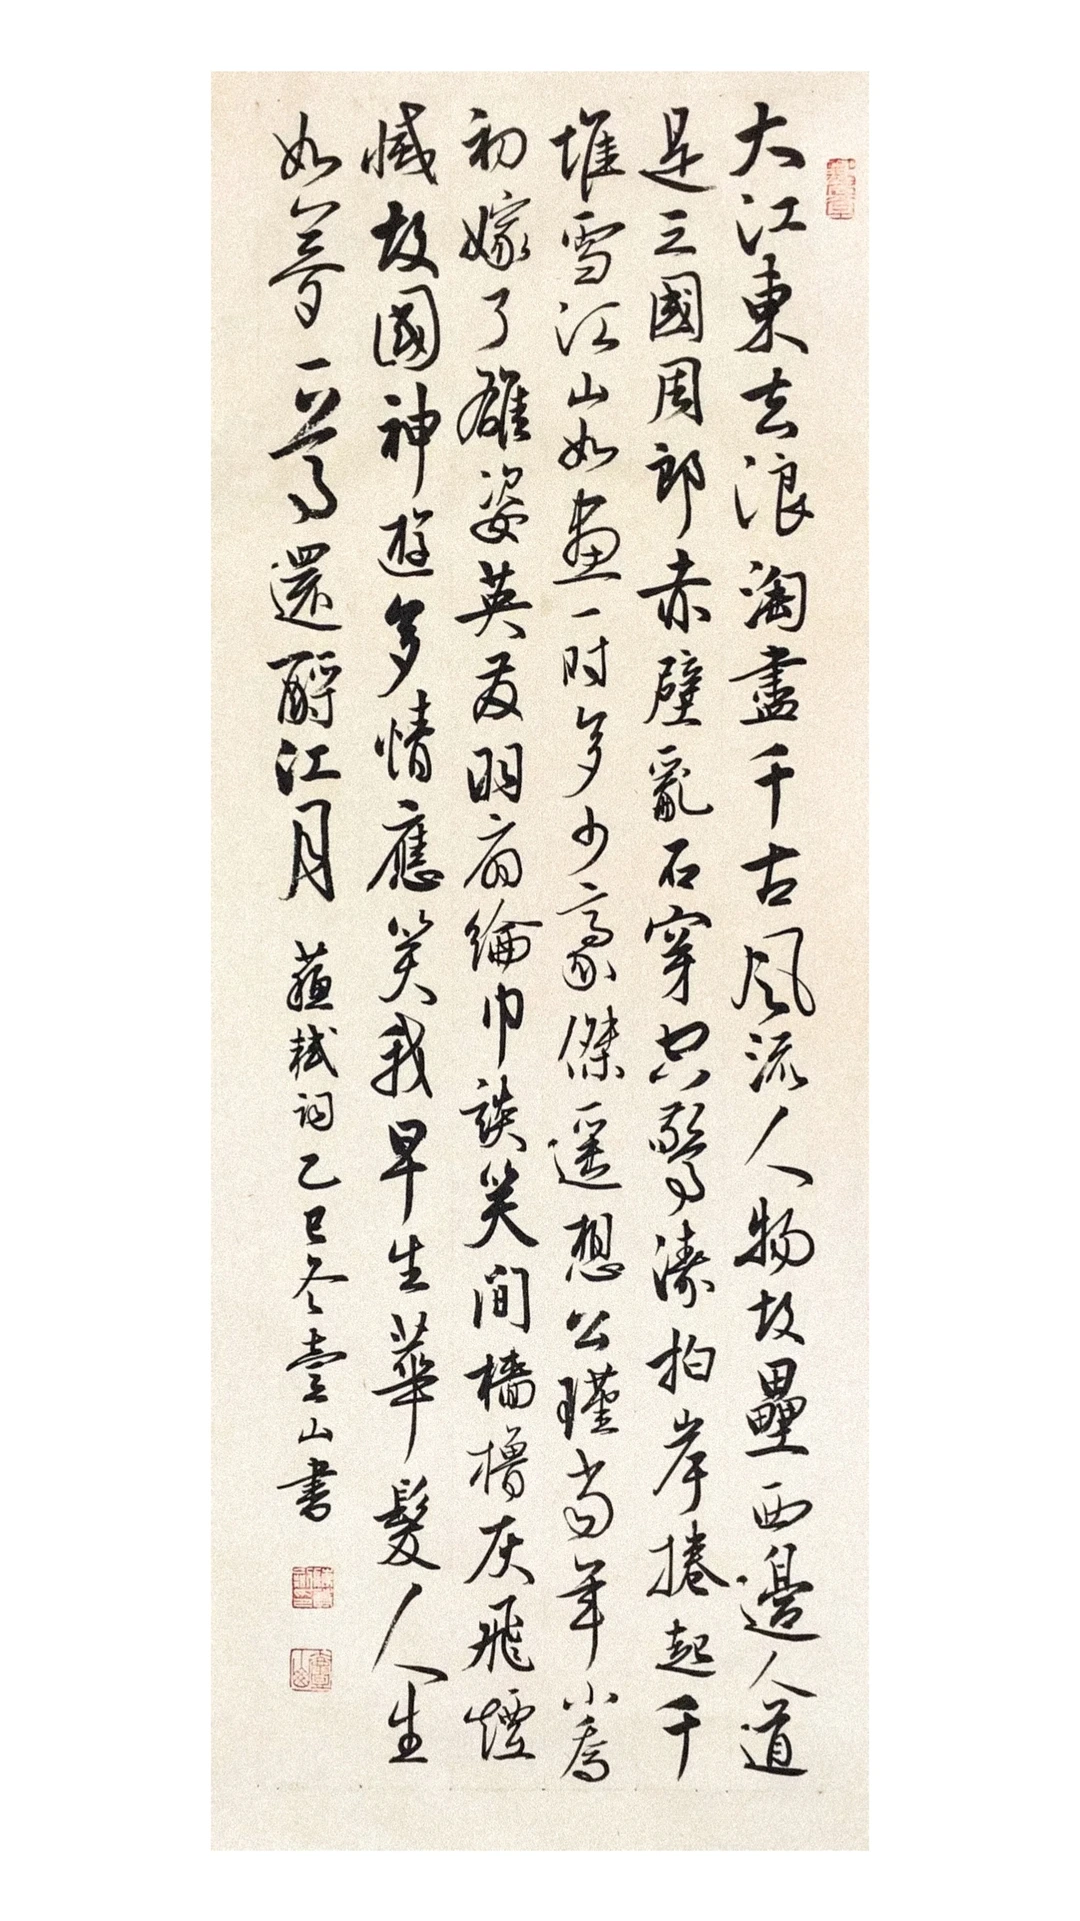 大江東去浪淘盡千古風流人物故壘西邊人道
是三國周郎赤壁亂石穿空驚濤拍岸捲起千
堆雪江山如畫一時多少豪傑遥想公瑾當年小喬
初嫁了雄姿英發羽扇綸巾談笑間檣櫓灰飛煙
滅故國神遊多情應笑我早生華髮人生
如夢一尊還酹江月 蘇軾詞乙巳冬山書